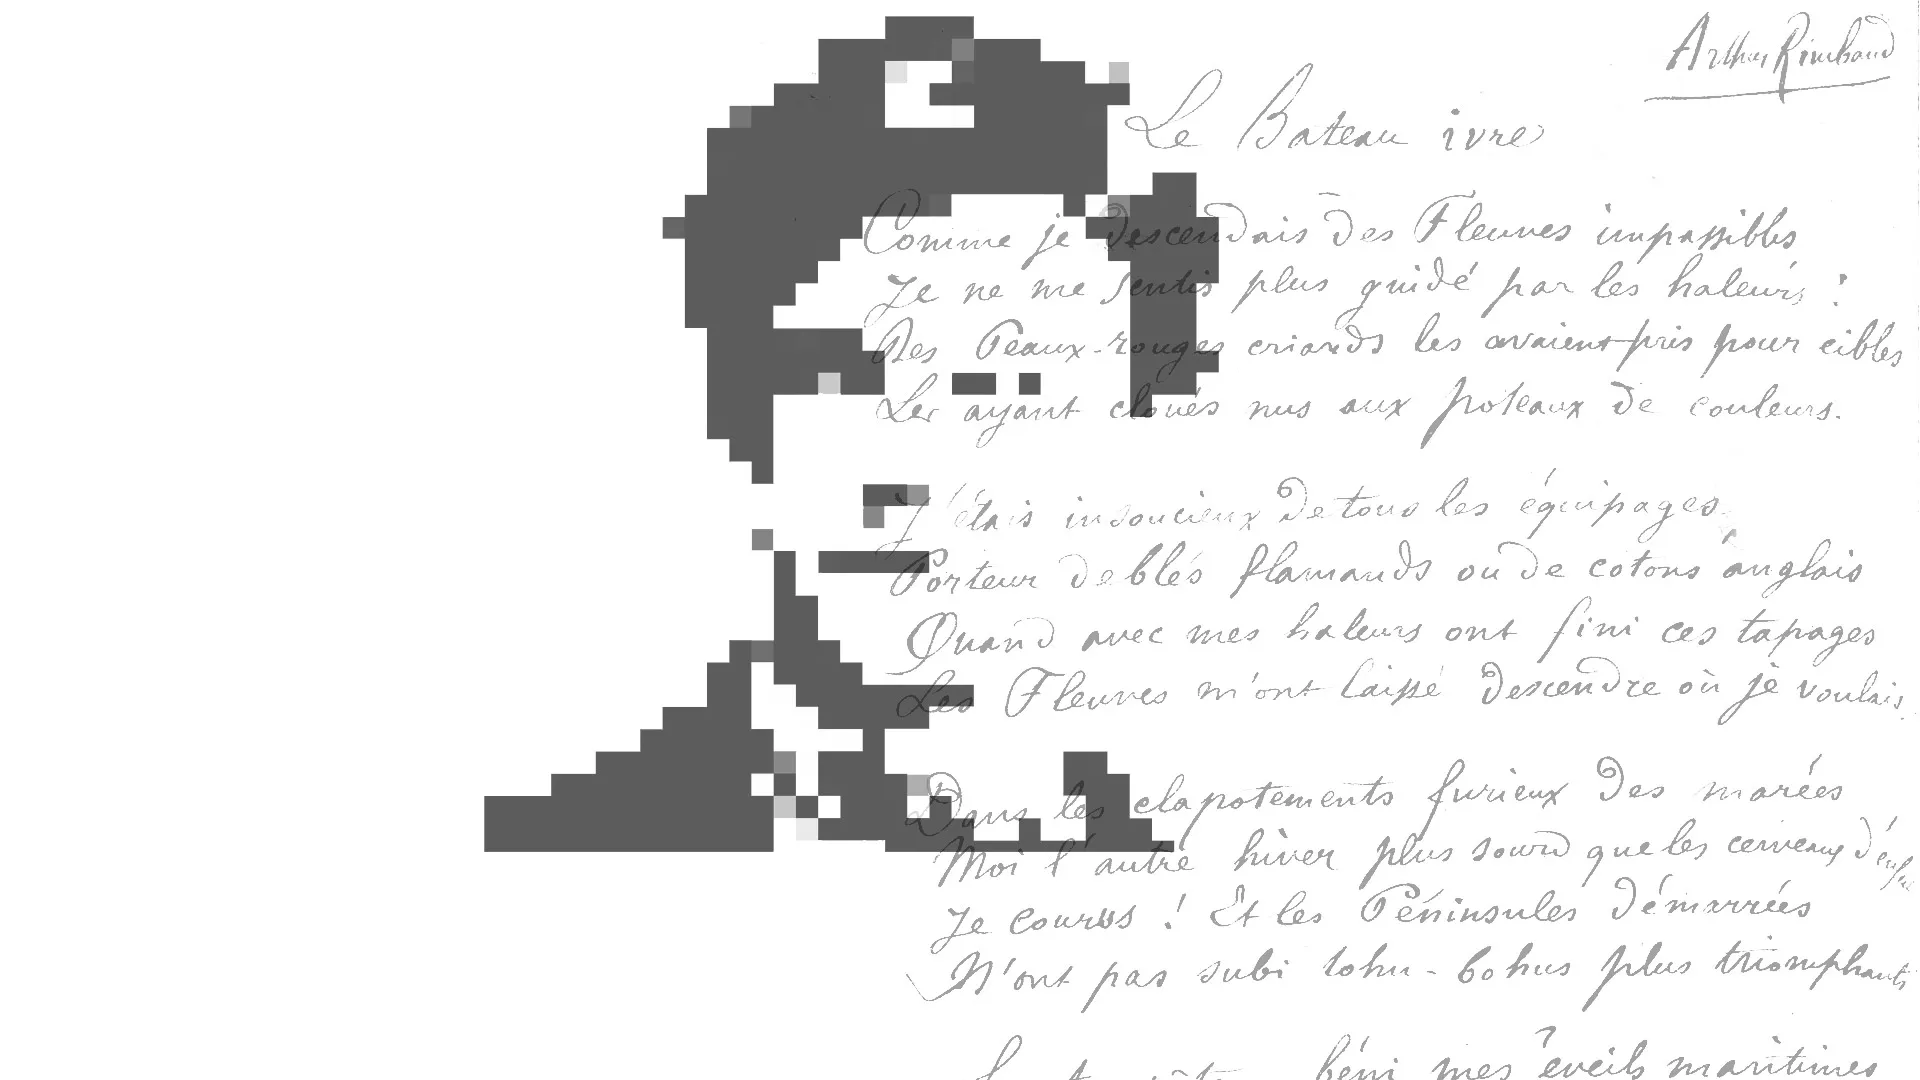 Arthur Rimbaud
Le Bateau ivre
Comme je descendais des Fleuves impassibles
Je ne me sentis plus guidé par les haleurs :
Des Peaux-rouges criards les avaient pris pour cibles
Les ayant cloués nus aux poteaux de couleurs.
J'étais insoucieux de tous les équipages,
Porteur de blés flamands ou de cotons anglais
Quand avec mes haleurs ont fini ces tapages
Les Fleuves m'ont laissé descendre où je voulais.
Dans les clapotements furieux des marées
Moi l'autre hiver plus sourd que les cerveaux d'enfants
Je courus ! Et les Péninsules démarrées
N'ont pas subi tohu-bohus plus triomphants
béni mes éveils maritimes